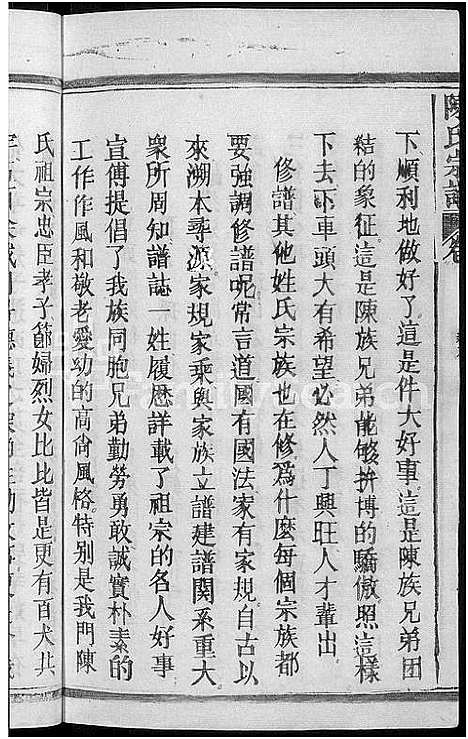 陳氏宗譜 卷
下順利地做好了這是件大好事這是陳族兄弟团
結的象征這是陳族兄弟能够拚博的驕傲照這樣
下去下車頭大有希望必然人丁興旺人才輩出
修譜其他姓氏宗族也在修為什麼每個宗族都
要強調修譜呢常言道國有國法家有家規自古以
來溯本尋源家規家乘與家族立譜建譜関系重大
衆所周知譜誌一姓履歷詳載了祖宗的名人好事
宣傅提倡了我族同胞兄弟勤勞勇敢誠實朴素的
工作作風和敬老愛幼的高尚風恪特别是我門陳
氏祖宗忠臣孝子節婦烈女比比皆是更有百犬共